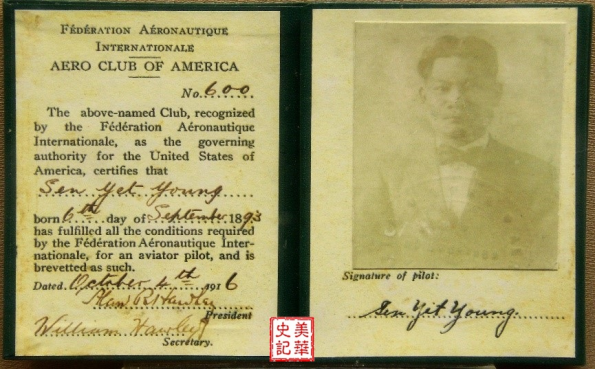 FÉDÉRATION AÉRONAUTIQUE
INTERNATIONALE
AERO CLUB OF AMERICA
No. 600
The above-named Club, recognized
by the Fédération Aéronautique
Internationale, as the governing
authority for the United States of
America, certifies that
Sen Yet Young
born 6th day of September 1893
has fulfilled all the conditions required
by the Fédération Aéronautique Inter-
nationale, for an aviator pilot, and is
brevetted as such.
Dated. October 4th 1916
President
William Hawley
Secretary.
Signature of pilot:
Sen Yit Young
美華
史記